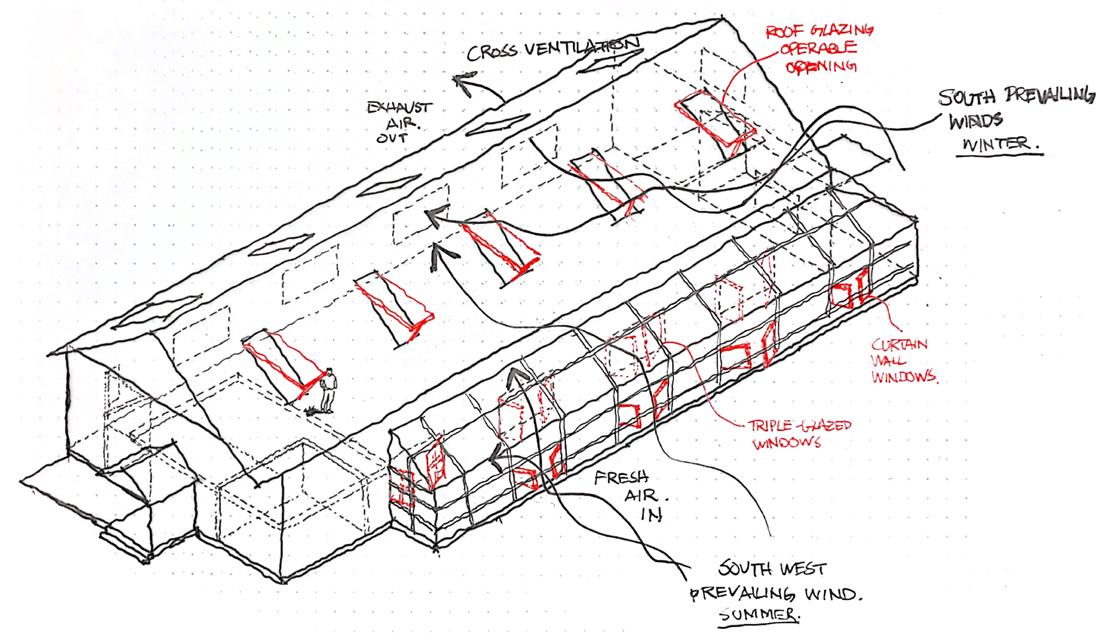 CROSS VENTILATION
ROOF GLAZING
OPERABLE
OPENING
EXHAUST
AIR.
OUT
SOUTH PREVAILING
WINDS
WINTER.
CURTAIN
WALL
WINDOWS.
TRIPLE-GLAZED
WINDOWS
FRESH
AIR.
IN
SOUTH WEST
PREVAILING WIND.
SUMMER.